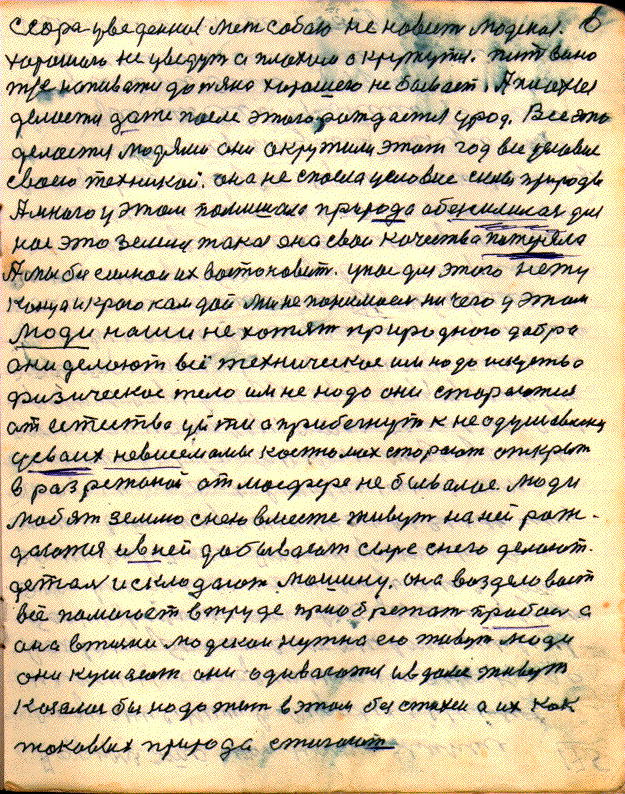 6
ссора уведенная Мет собою не новит людской.
хорошаго не уведут а плохим окружути. пит вино
тже напивати до пяно хорошего не бывает. А плохоя
делоется даже после этого рождается урод. Все это
делоется людями они окружили этот год все условие
своею техникой. она не спосла условие сколь природе
А много у этом помишало природа обезсилилас для
нас это земля такая она свои качества потеряла
А мы бы силной их востоновит. у нас для этого нету
конца и краю кам дай мы не понимаем ничего у этом
люди наши не хотят природного добра
они делают всё техническое им надо искуство
физическое тело им не надо они стораются
от естества уйти а прибегнут к неодушевлену
у своих невисемолы костюмах сторают открыт
в разреженой отмосфере не бывалое. люди
любят землю снею вместе живут на ней раж-
даются и в ней добывают сыре снего делоют.
детал и складают машину. она возделовает
всё помогает в труде приобретат прибол а
она в жизни людской нужна ею живут люди
они кушают они одиваются и в доме живут
Козалос бы надо жит в этом без стихеи а их как
таковых природа стигает